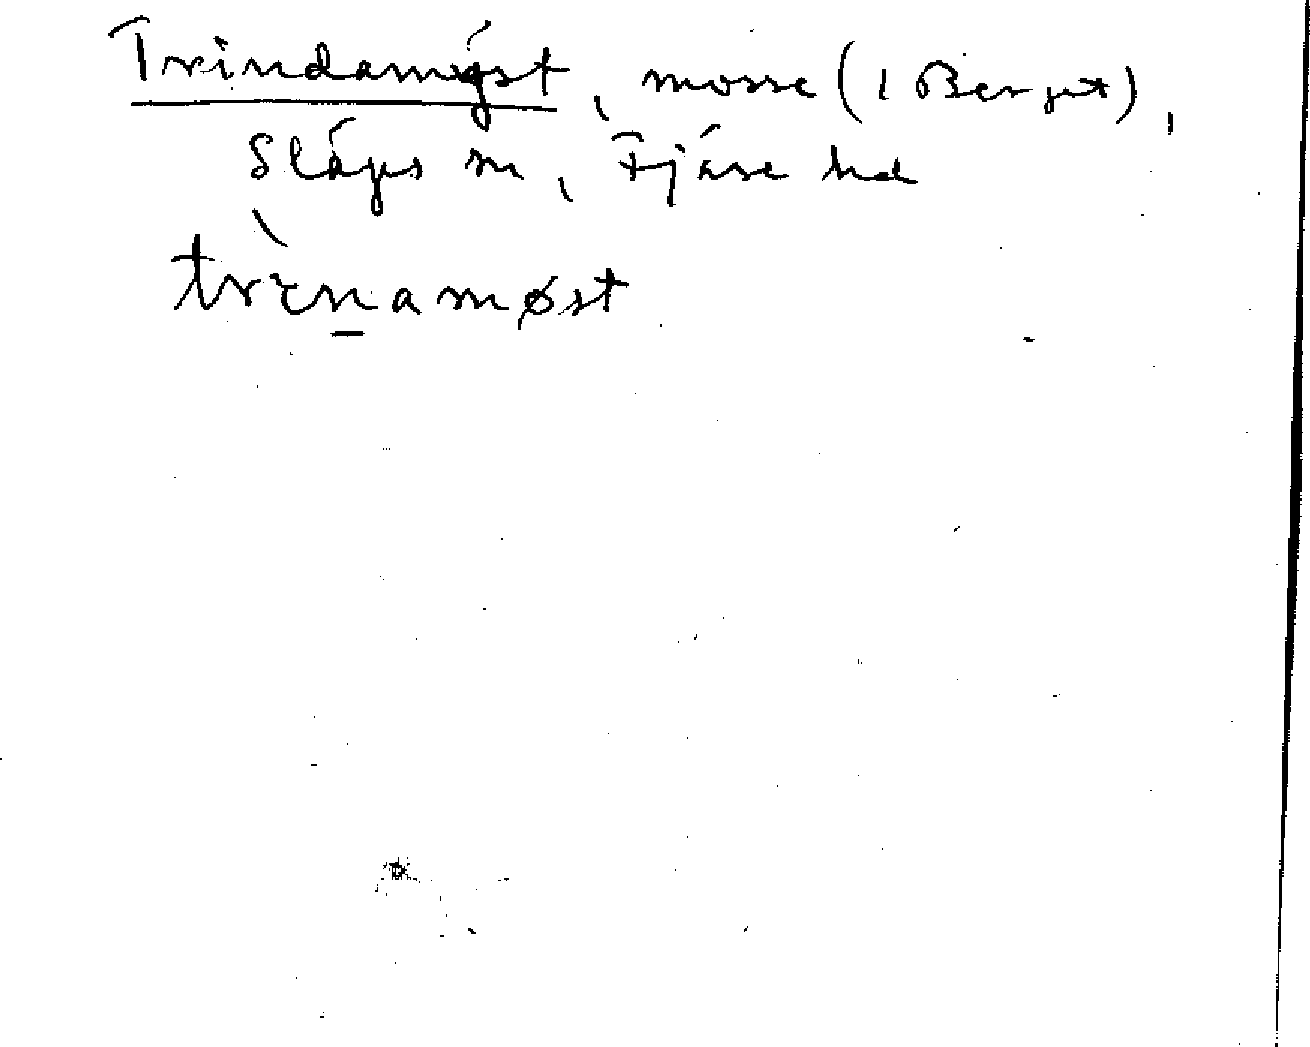 Trindamyst, mosse (i Berget),
Släps sn, Fjäre hd
trɪ̀namøst